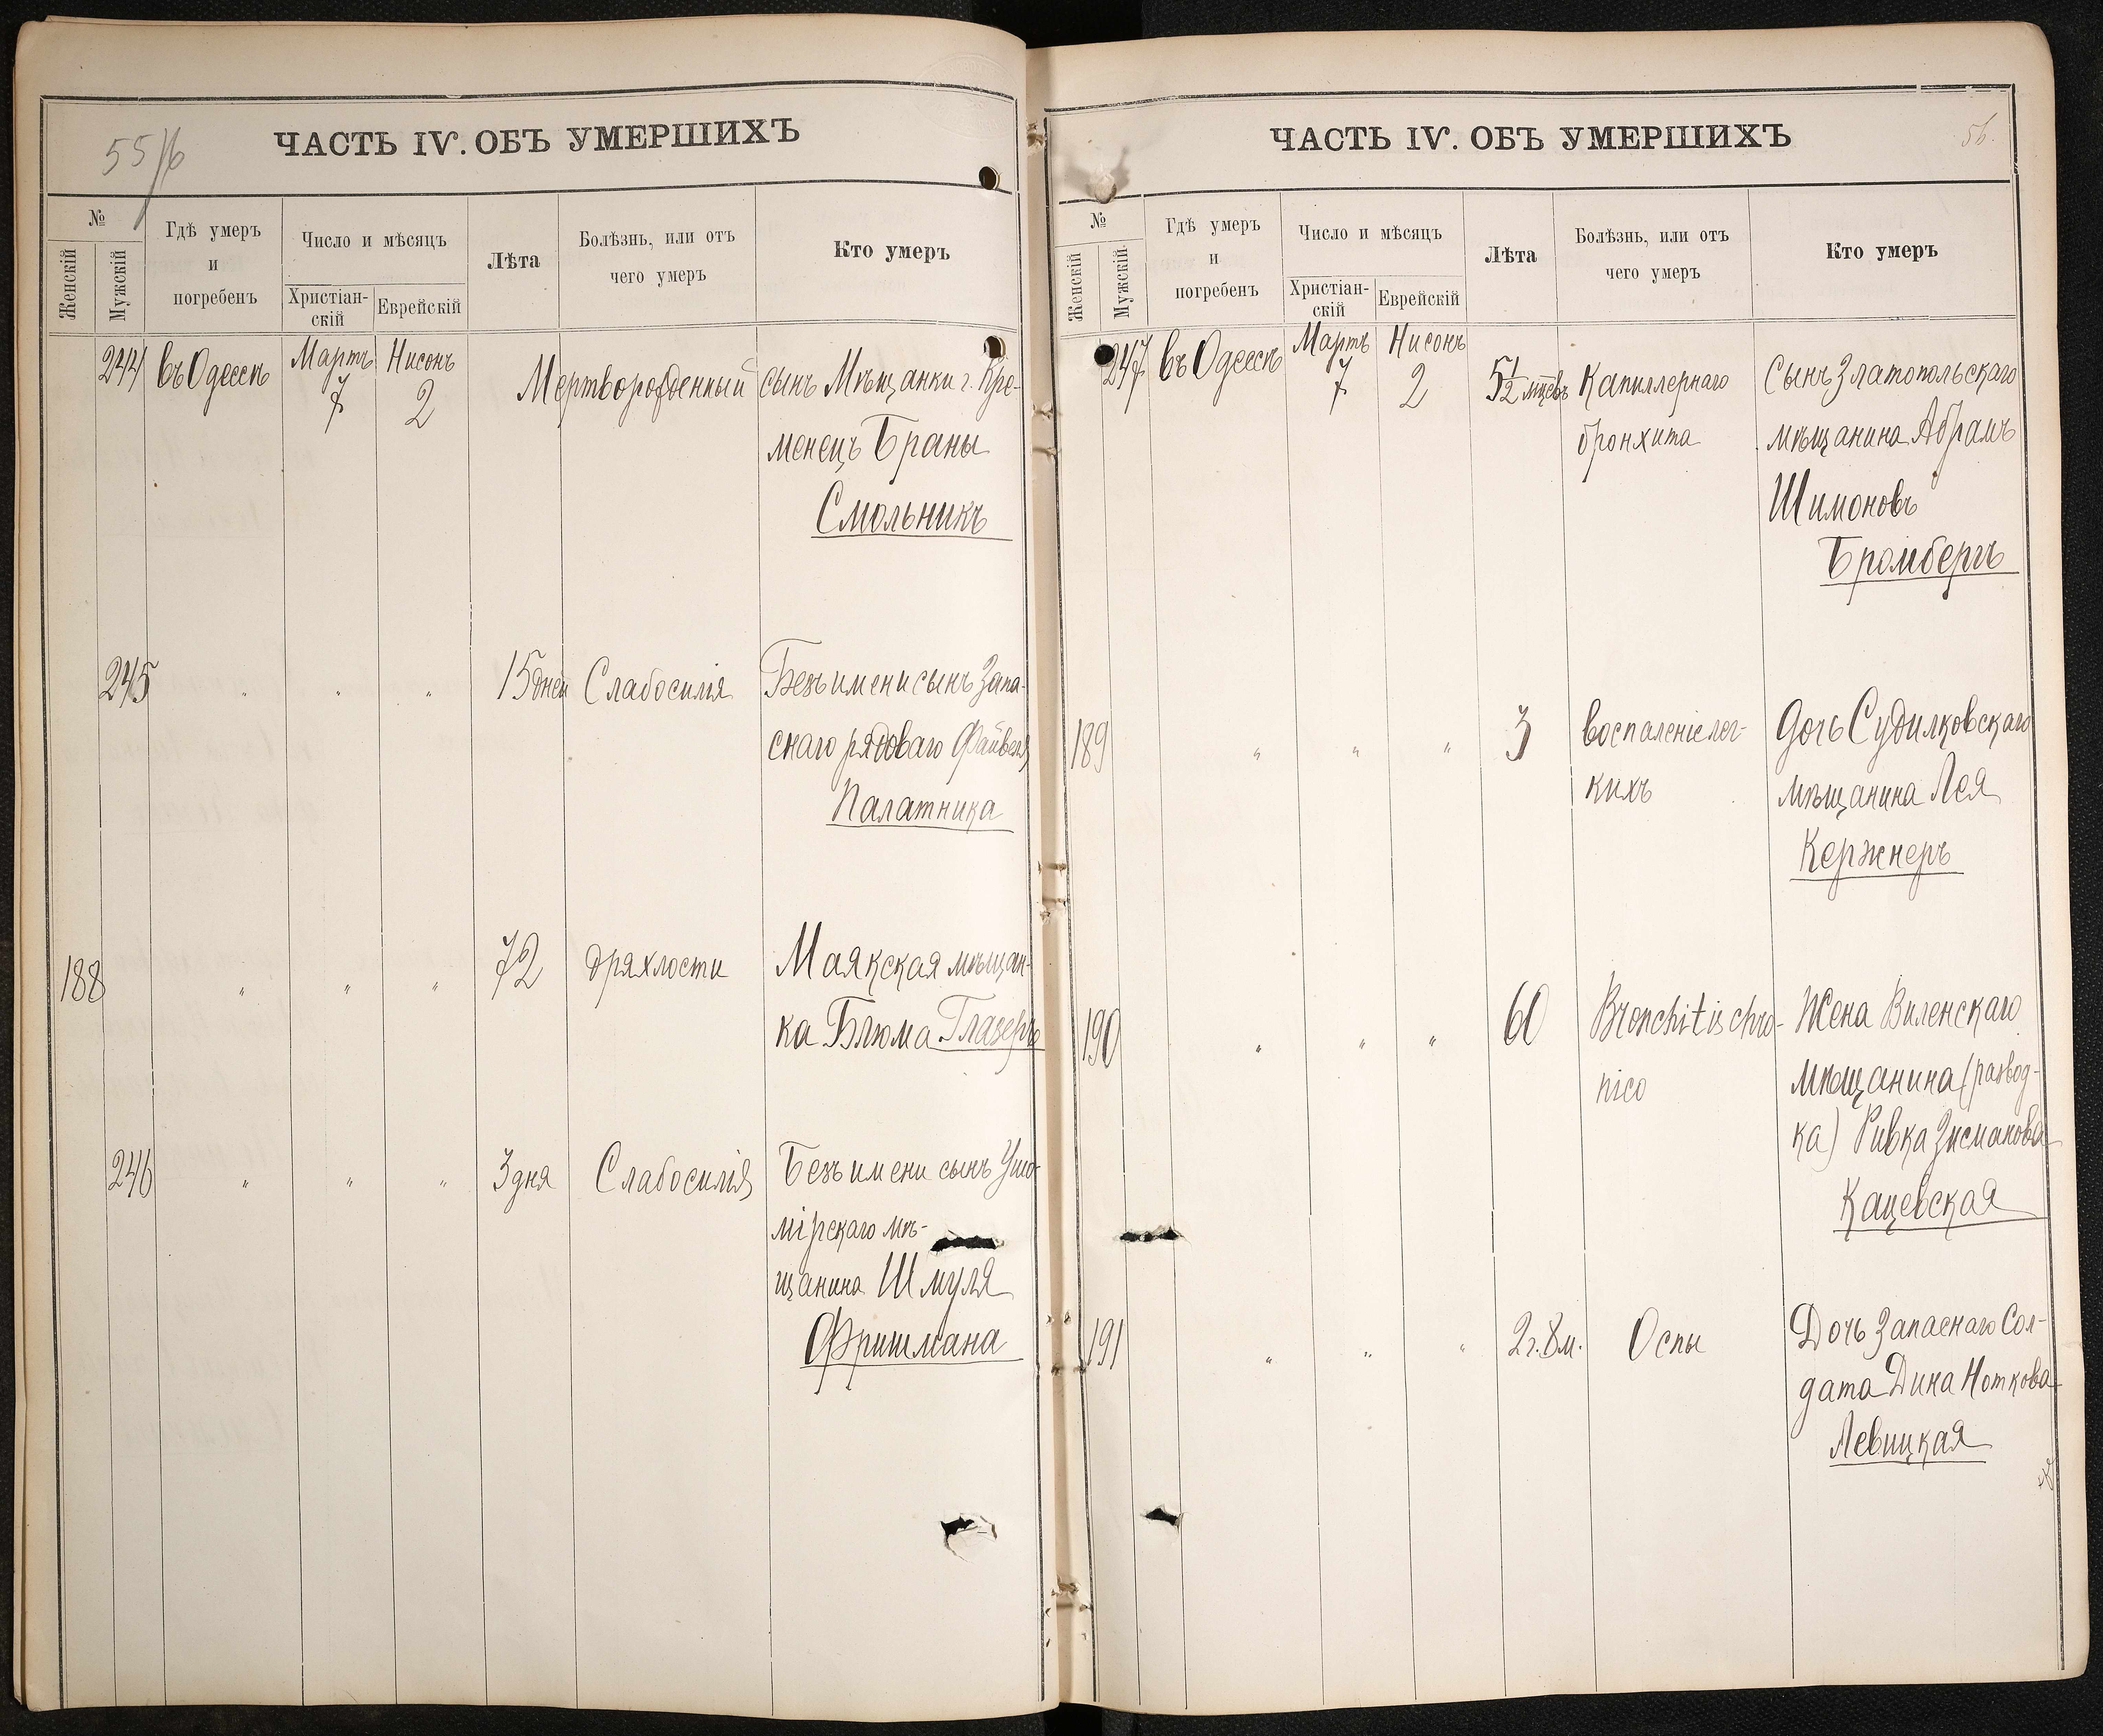 55/6
ЧАСТЬ IV. ОБЪ УМЕРШИХЪ
№
Женскій
Мужскій
Гдѣ умеръ
и
погребенъ
Число и мѣсяцъ
Христіан-
скій
Еврейскій
Лѣта
Болѣзнь, или отъ
чего умеръ
Кто умеръ
244 въ Одессѣ Мартъ 7 Нисонъ 2 Мертворожденный сынъ Мѣщанки г. Кре-
менецъ Браны
Смольникъ
245 " " " 15 дней Слабосилія Безъ имени сынъ Запа-
снаго рядоваго Файвеля
Палатника
188 " " " 72 дряхлости Маякская мѣщан-
ка Блюма Глазеръ
246 " " " 3 дня Слабосилія Безъ имени сынъ Ушо-
мірскаго мѣ-
щанина Шмуля
Фришмана
ЧАСТЬ IV. ОБЪ УМЕРШИХЪ
56.
№
Женскій
Мужскій.
Гдѣ умеръ
и
погребенъ
Число и мѣсяцъ
Христіан-
скій
Еврейскій
Лѣта
Болѣзнь, или отъ
чего умеръ
Кто умеръ
247 въ Одессѣ Мартъ 7 Нисонъ 2 5 1/2 мцевъ Капиллернаго Сынъ Златопольскаго
бронхита мѣщанина Абрамъ
Шимоновъ
Бромбергъ
189 " " " 3 воспаленіе лег- Дочь Судилковскаго
кихъ мѣщанина Лея
Кержнеръ
190 " " " 60 Bronchitis chro- Жена Виленскаго
nico мѣщанина (развод-
ка) Ривка Зисманова
Кацевская
191 " " " 2 г. 8 м. Оспы Дочь Запаснаго Сол-
дата Дина Ноткова
Левицкая